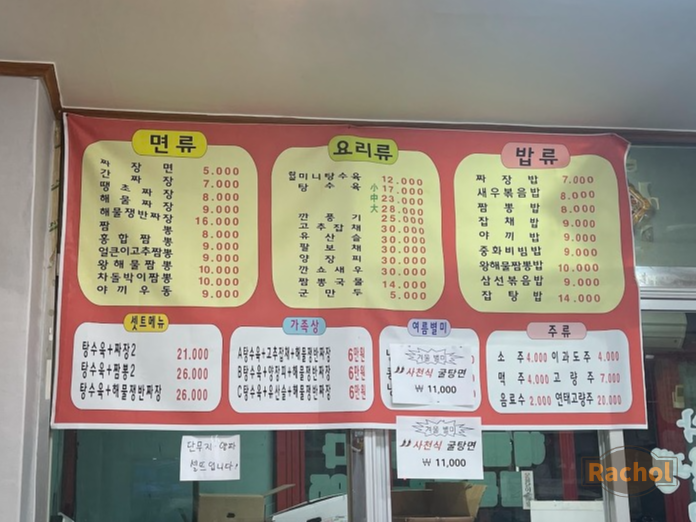 면류
짜장면 5.000
간짜장 7.000
땡초짜장 8.000
해물짜장 9.000
해물쟁반짜장 16.000
짬뽕 8.000
홍합짬뽕 9.000
얼큰이고추짬뽕 9.000
왕해물짬뽕 10.000
차돌박이짬뽕 10.000
야끼우동 9.000
요리류
미니탕수육 12.000
탕수육 小 17.000
中 23.000
大 28.000
깐풍기 25.000
고추잡채 30.000
유산슬 30.000
팔보채 30.000
양장피 30.000
깐쇼새우 30.000
짬뽕국물 14.000
군만두 5.000
밥류
짜장밥 7.000
새우볶음밥 8.000
짬뽕밥 8.000
잡채밥 9.000
야끼밥 9.000
중화비빔밥 9.000
왕해물짬뽕밥 10.000
삼선볶음밥 9.000
잡탕밥 14.000
셋트메뉴
탕수육+짜장2 21.000
탕수육+짬뽕2 26.000
탕수육+해물쟁반짜장 26.000
가족상
A탕수육+고추잡채+해물쟁반짜장 6만원
B탕수육+양장피+해물쟁반짜장 6만원
C탕수육+유산슬+해물쟁반짜장 6만원
여름별미
겨울 별미
사천식 굴탕면
₩ 11,000
주류
소주 4.000 이과도주 4.000
맥주 4.000 고량주 7.000
음료수 2.000 연태고량주 20.000
겨울 별미
사천식 굴탕면
₩ 11,000
단무지·양파
셀프입니다!
Rachol